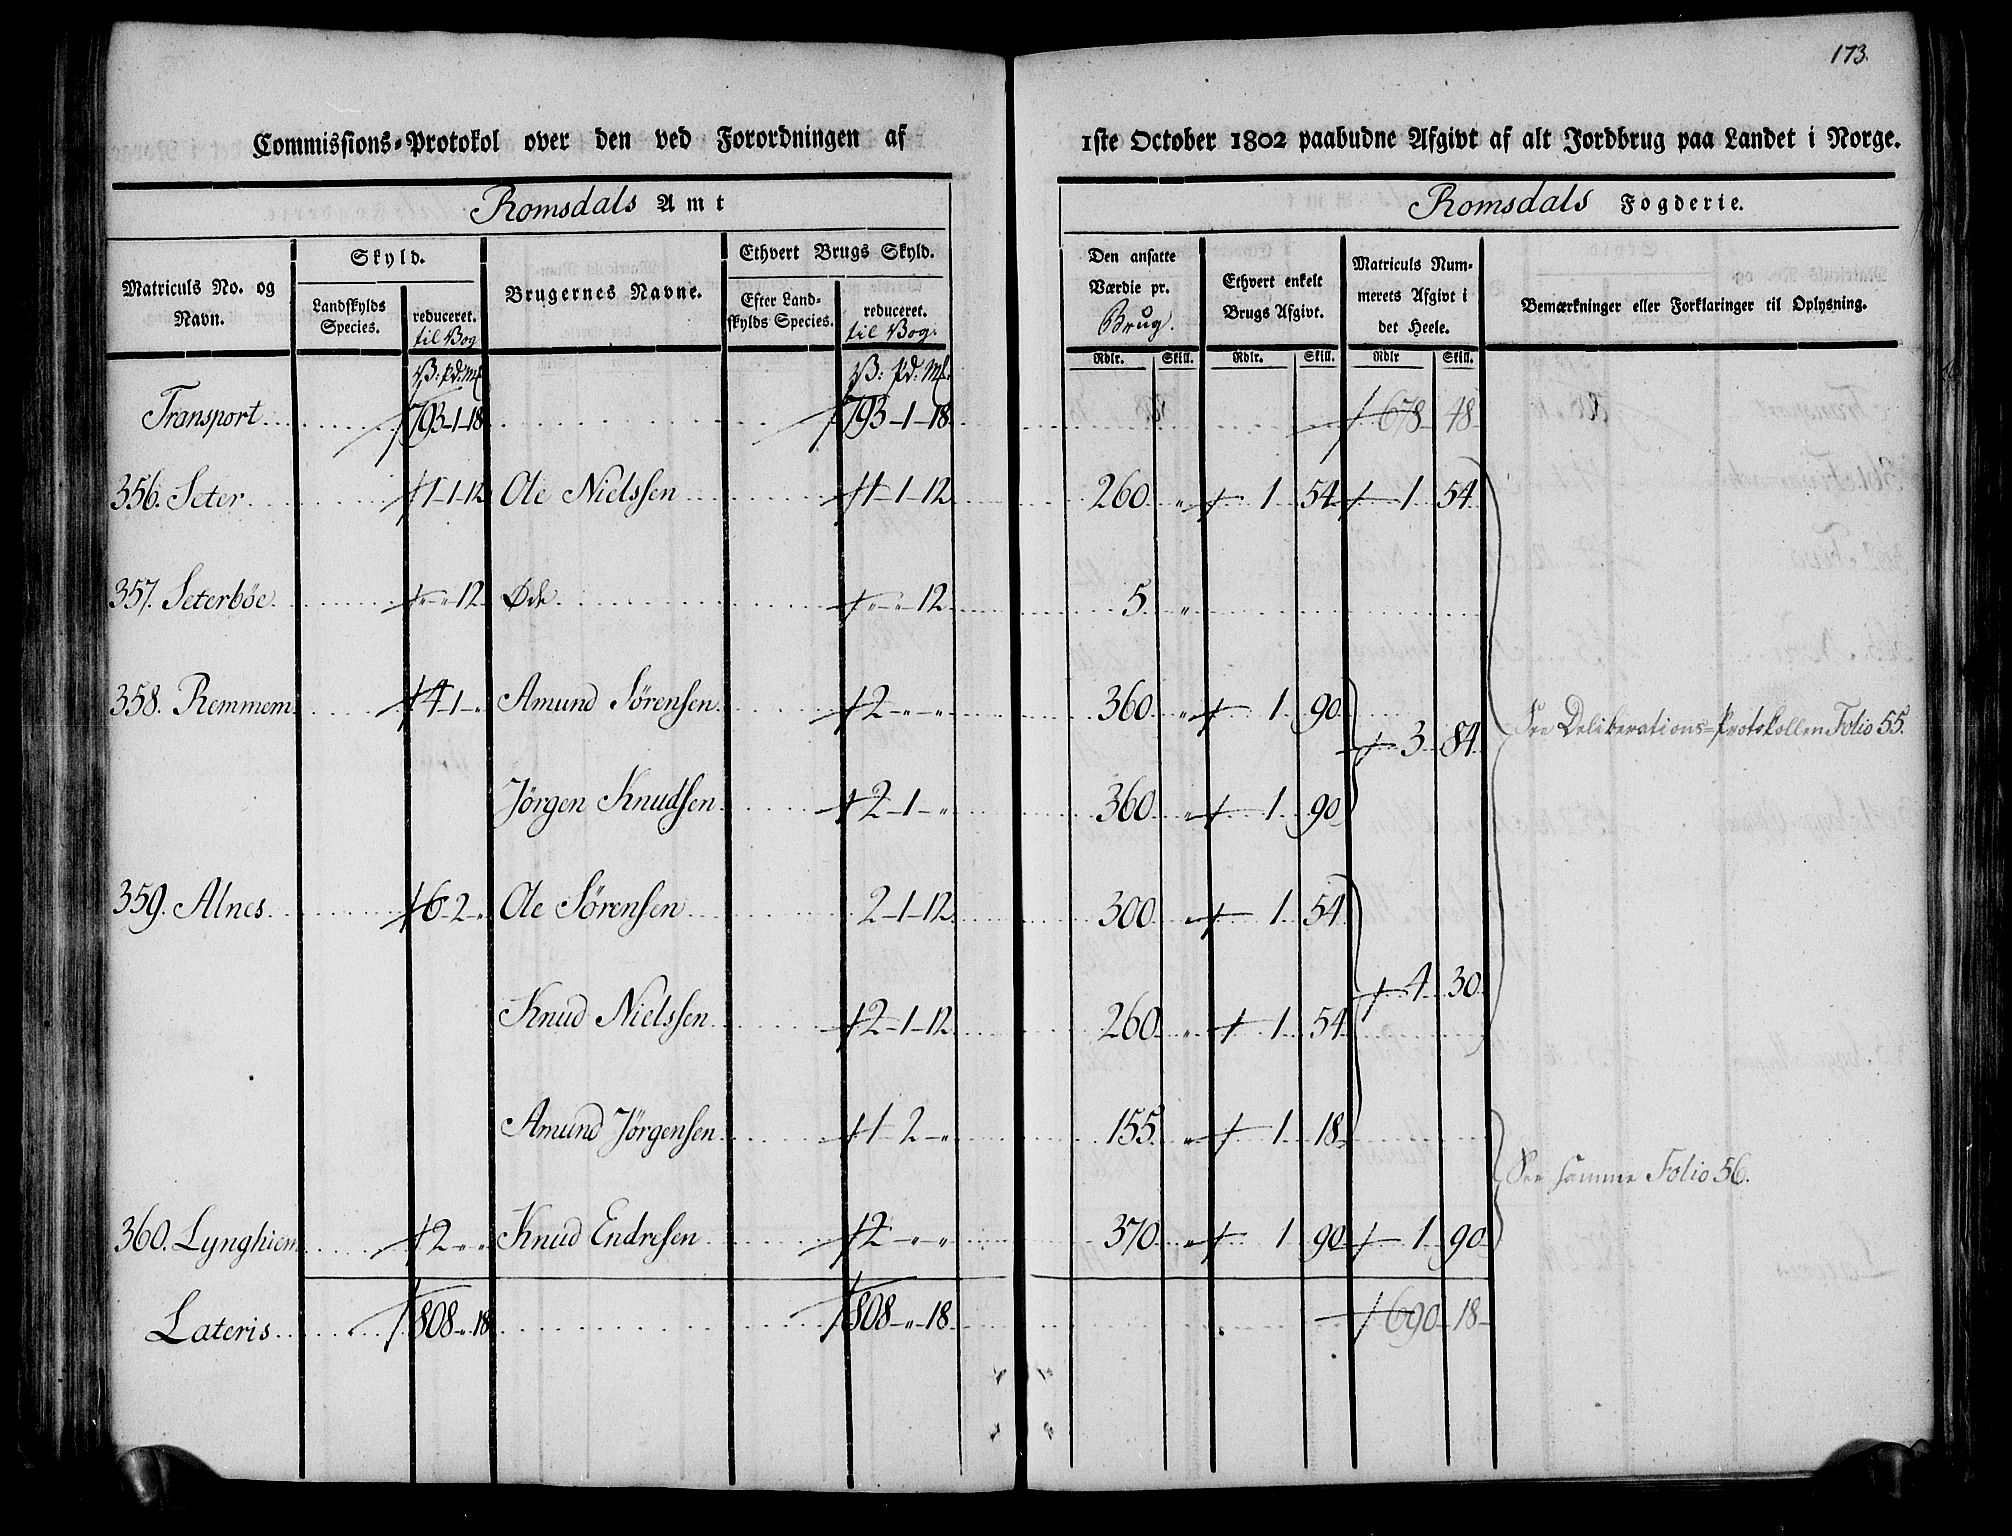 173.
Commissions-Protokol over den ved Forordningen af 1ste October 1802 paabudne Afgivt af alt Jordbrug paa Landet i Norge.
Romsdals Amt Romsdals Fogderie.
Matriculs No. og Navn. Skyld. Landskylds Species. reduceret. til Bog Brugernes Navne. Ethvert Brugs Skyld. Efter Landskylds Species. reduceret. til Bog: Den ansatte Værdie pr. Brug. Ethvert enkelt Brugs Afgivt. Matriculs Nummerets Afgivt i det Heele. Bemærkninger eller Forklaringer til Oplysning.
V: pd: Mk V: pd: Mk. Rdlr. Skill. Rdlr. Skill. Rdlr Skill.
Transport 793-1-18 793-1-18 678 48
356. Seter 1-1-12 Ole Nielssen 1-1-12 260 " 1 54 1 54
357. Seterböe " " 12 Øde " " 12 5 "
358. Remmem 4-1-" Amund Sörensen 2-"-" 360 " 1 90
3 84 See Deliberations-Protokollen Folio 55.
Jörgen Knudsen 2-1-" 360 " 1 90
359. Alnes 6-2-" Ole Sörensen 2-1-12 300 " 1 54
4 30
Knud Nielssen 2-1-12 260 " 1 54
Amund Jörgensen 1-2-" 155 " 1 18
See samme Folio 56.
360. Lynghiem 2-"-" Knud Endresen 2-"-" 370 " 1 90 1 90
Lateris 808-"-18 808-"-18 690 18